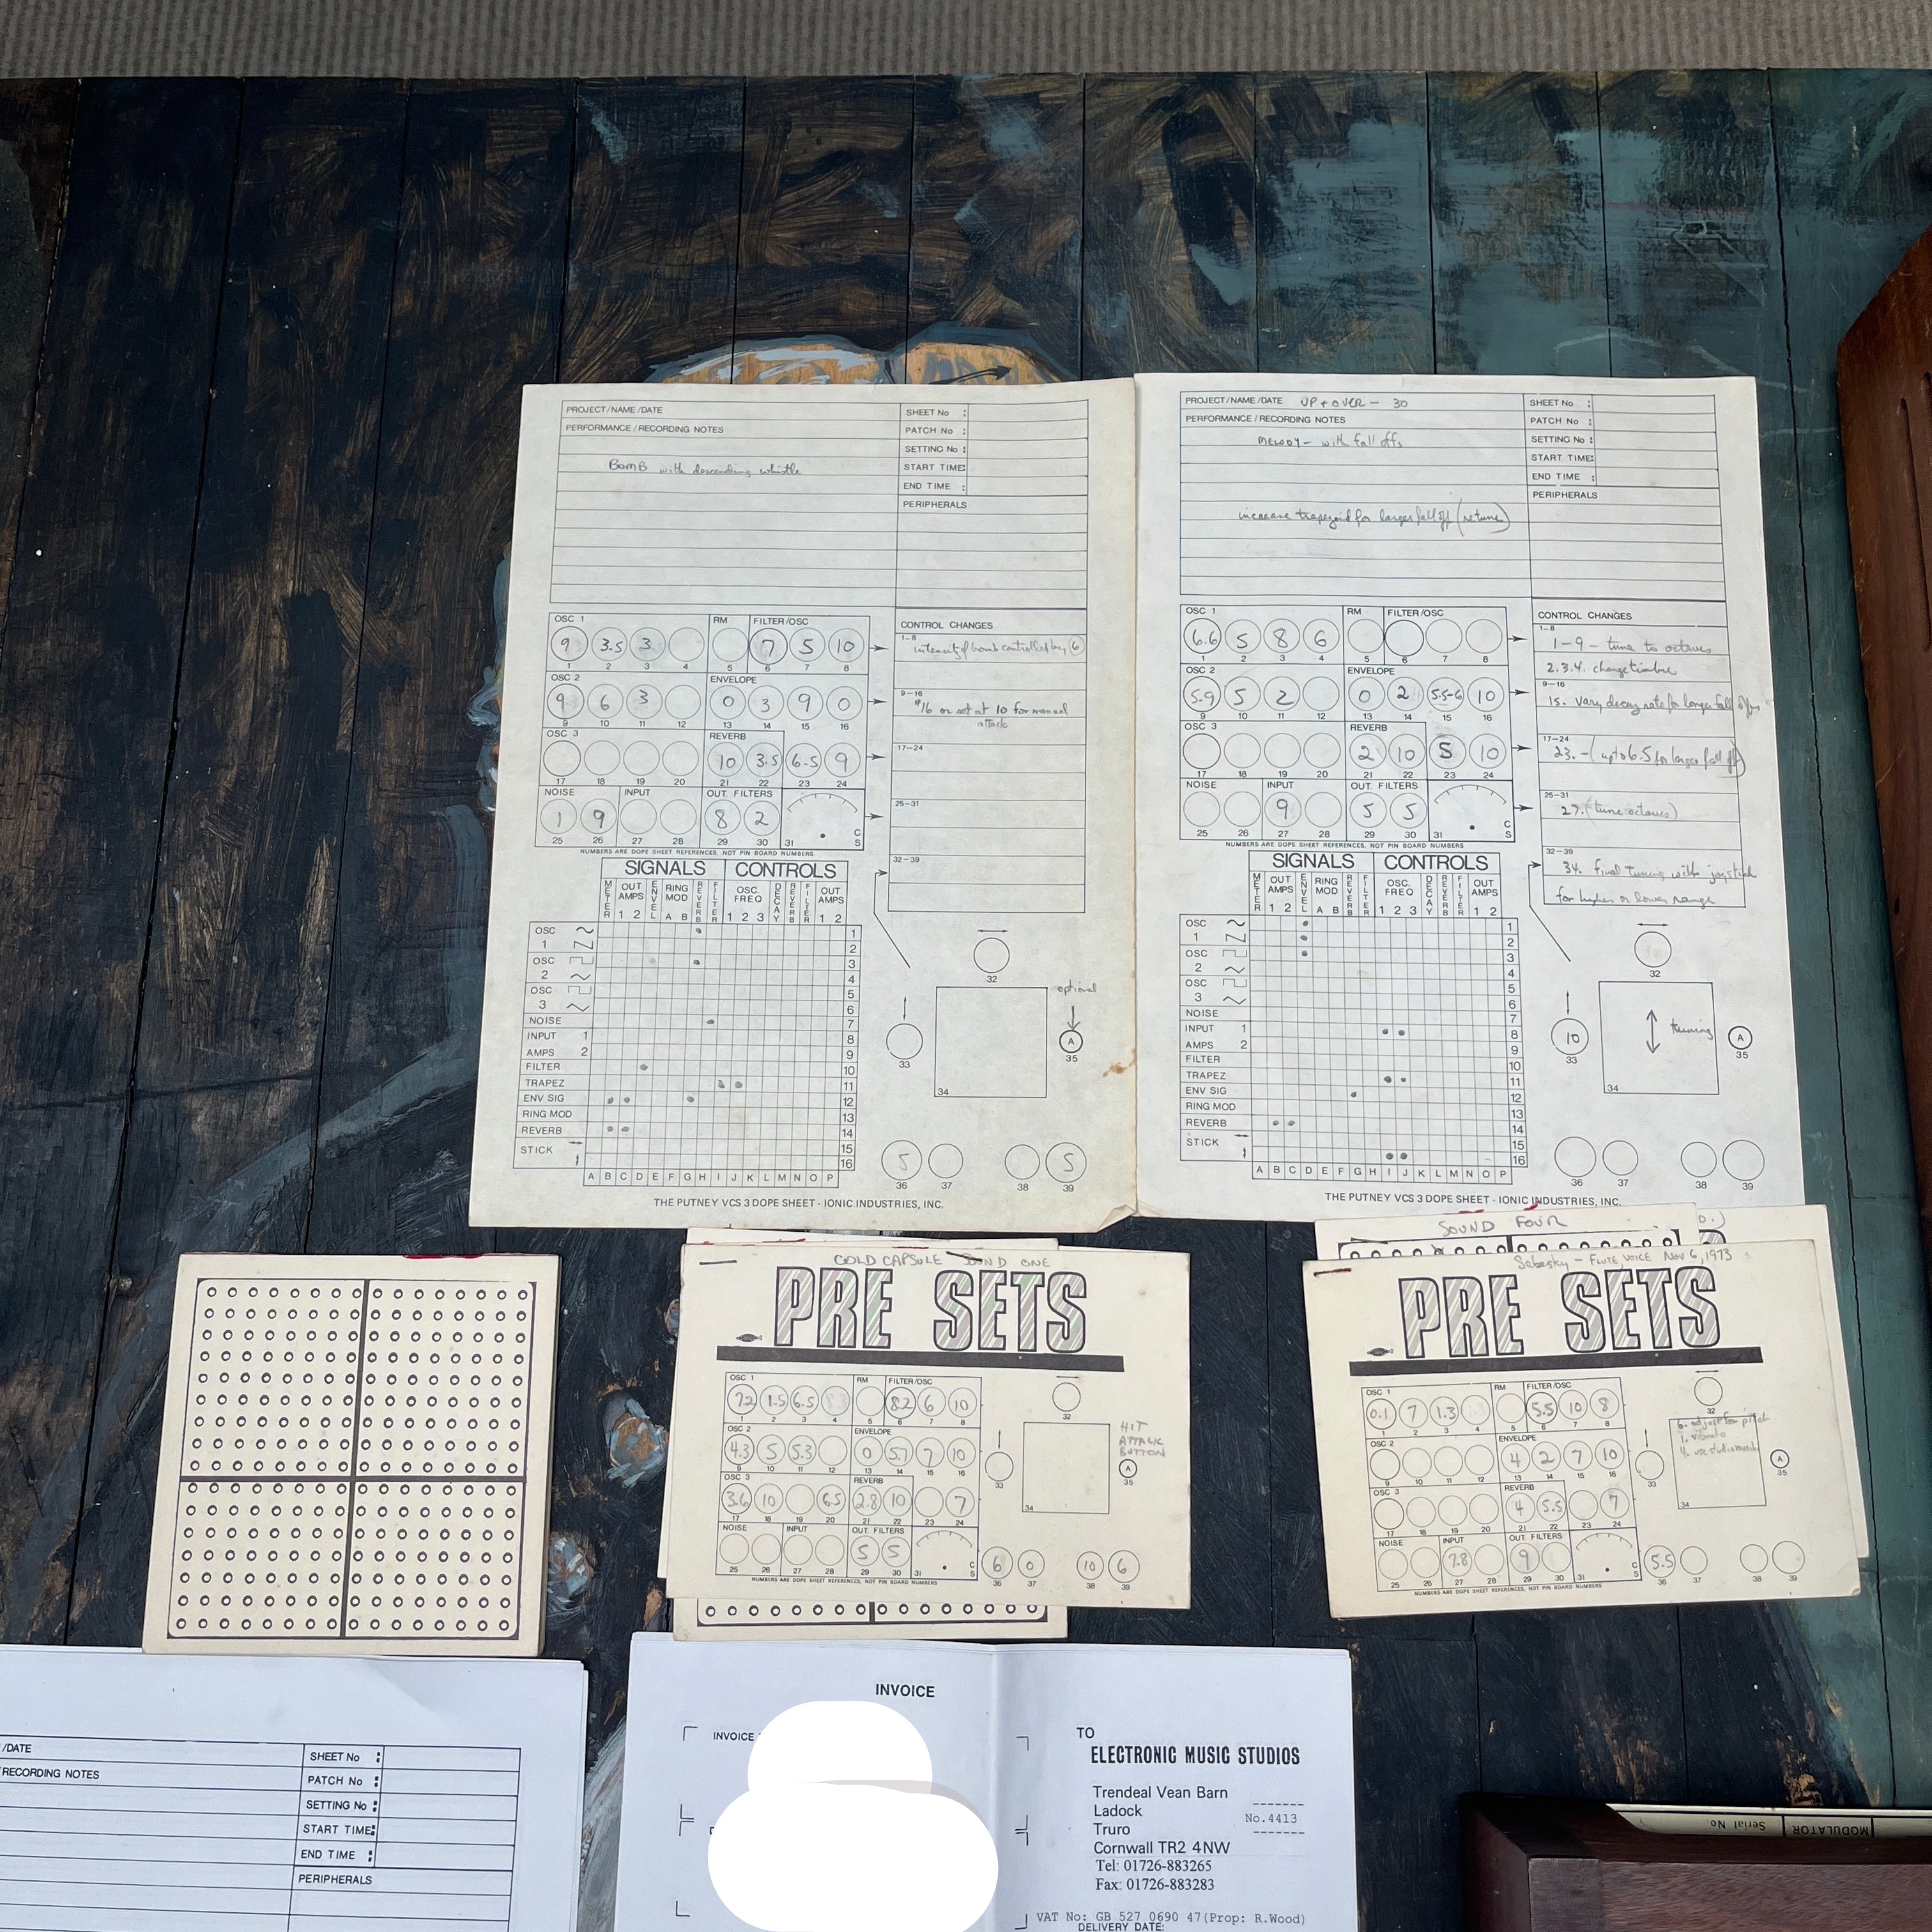 PROJECT/NAME/DATE
SHEET No :
PERFORMANCE/RECORDING NOTES
PATCH No :
SETTING No :
BOMB with descending whistle
START TIME:
END TIME :
PERIPHERALS
OSC 1 RM FILTER/OSC
9 3.5 3 7 5 10
1 2 3 4 5 6 7 8
OSC 2 ENVELOPE
9 6 3 0 3 9 0
9 10 11 12 13 14 15 16
OSC 3 REVERB
10 3.5 6.5 9
17 18 19 20 21 22 23 24
NOISE INPUT OUT. FILTERS
1 9 8 2
C
S
25 26 27 28 29 30 31
NUMBERS ARE DOPE SHEET REFERENCES, NOT PIN BOARD NUMBERS.
CONTROL CHANGES
1-8
intensity of bomb controlled by 6
9-16
#16 or set at 10 for manual
attack
17-24
25-31
32-39
SIGNALS CONTROLS
METER OUT AMPS 1 2 ENVEL RING MOD A B REVERB FILTER OSC. FREQ 1 2 3 DECAY REVERB FILTER OUT AMPS 1 2
OSC 1
1
2
OSC 2
3
4
OSC 3
5
6
NOISE 7
INPUT 1 8
AMPS 2 9
FILTER 10
TRAPEZ 11
ENV SIG 12
RING MOD 13
REVERB 14
STICK 15
16
A B C D E F G H I J K L M N O P
32
optional
33
A
35
34
5 5
36 37 38 39
THE PUTNEY VCS 3 DOPE SHEET - IONIC INDUSTRIES, INC.
PROJECT/NAME/DATE UP + OVER - 30
SHEET No :
PERFORMANCE/RECORDING NOTES
PATCH No :
MELODY - with fall offs
SETTING No :
START TIME:
END TIME :
PERIPHERALS
increase trapezoid for larger fall off (retune)
OSC 1 RM FILTER/OSC
6.6 5 8 6
1 2 3 4 5 6 7 8
OSC 2 ENVELOPE
5.9 5 2 0 2 5.5-6 10
9 10 11 12 13 14 15 16
OSC 3 REVERB
2 10 5 10
17 18 19 20 21 22 23 24
NOISE INPUT OUT. FILTERS
9 5 5
C
S
25 26 27 28 29 30 31
NUMBERS ARE DOPE SHEET REFERENCES, NOT PIN BOARD NUMBERS
CONTROL CHANGES
1-8
1-9 - tune to octaves
2.3.4. change timbre
9-16
15. vary decay rate for longer fall offs
17-24
23. - (up to 6.5 for larger fall off)
25-31
27. (tune octaves)
32-39
34. Final tuning with joystick
for higher or lower range
SIGNALS CONTROLS
METER OUT AMPS 1 2 ENVEL RING MOD A B REVERB FILTER OSC. FREQ 1 2 3 DECAY REVERB FILTER OUT AMPS 1 2
OSC 1
1
2
OSC 2
3
4
OSC 3
5
6
NOISE 7
INPUT 1 8
AMPS 2 9
FILTER 10
TRAPEZ 11
ENV SIG 12
RING MOD 13
REVERB 14
STICK 15
16
A B C D E F G H I J K L M N O P
32
10
33
tuning
A
35
34
36 37 38 39
THE PUTNEY VCS 3 DOPE SHEET - IONIC INDUSTRIES, INC.
GOLD CAPSULE SOUND ONE
PRE SETS
OSC 1 RM FILTER/OSC
7.2 1.5 6.5 8.2 6 10
1 2 3 4 5 6 7 8
OSC 2 ENVELOPE
4.3 5 5.3 0 5.7 7 10
9 10 11 12 13 14 15 16
OSC 3 REVERB
3.6 10 6.5 2.8 10 7
17 18 19 20 21 22 23 24
NOISE INPUT OUT. FILTERS
5 5
C
S
25 26 27 28 29 30 31
NUMBERS ARE DOPE SHEET REFERENCES, NOT PIN BOARD NUMBERS
32
HIT
ATTACK
BUTTON
A
33
35
34
6 0 10 6
36 37 38 39
SOUND FOUR
D.)
Sebesky - FLUTE VOICE NOV 6, 1973
PRE SETS
OSC 1 RM FILTER/OSC
0.1 7 1.3 5.5 10 8
1 2 3 4 5 6 7 8
OSC 2 ENVELOPE
4 2 7 10
9 10 11 12 13 14 15 16
OSC 3 REVERB
4 5.5 7
17 18 19 20 21 22 23 24
NOISE INPUT OUT. FILTERS
7.8 9
C
S
25 26 27 28 29 30 31
NUMBERS ARE DOPE SHEET REFERENCES, NOT PIN BOARD NUMBERS
32
6 - adjust for pitch
1. vibrato
A
33
35
34
5.5
36 37 38 39
/DATE
SHEET No :
RECORDING NOTES
PATCH No :
SETTING No :
START TIME:
END TIME :
PERIPHERALS
INVOICE
INVOICE
TO
ELECTRONIC MUSIC STUDIOS
Trendeal Vean Barn
Ladock
No.4413
Truro
Cornwall TR2 4NW
Tel: 01726-883265
Fax: 01726-883283
VAT No: GB 527 0690 47(Prop: R.Wood)
DELIVERY DATE:
Serial No
MODULATOR